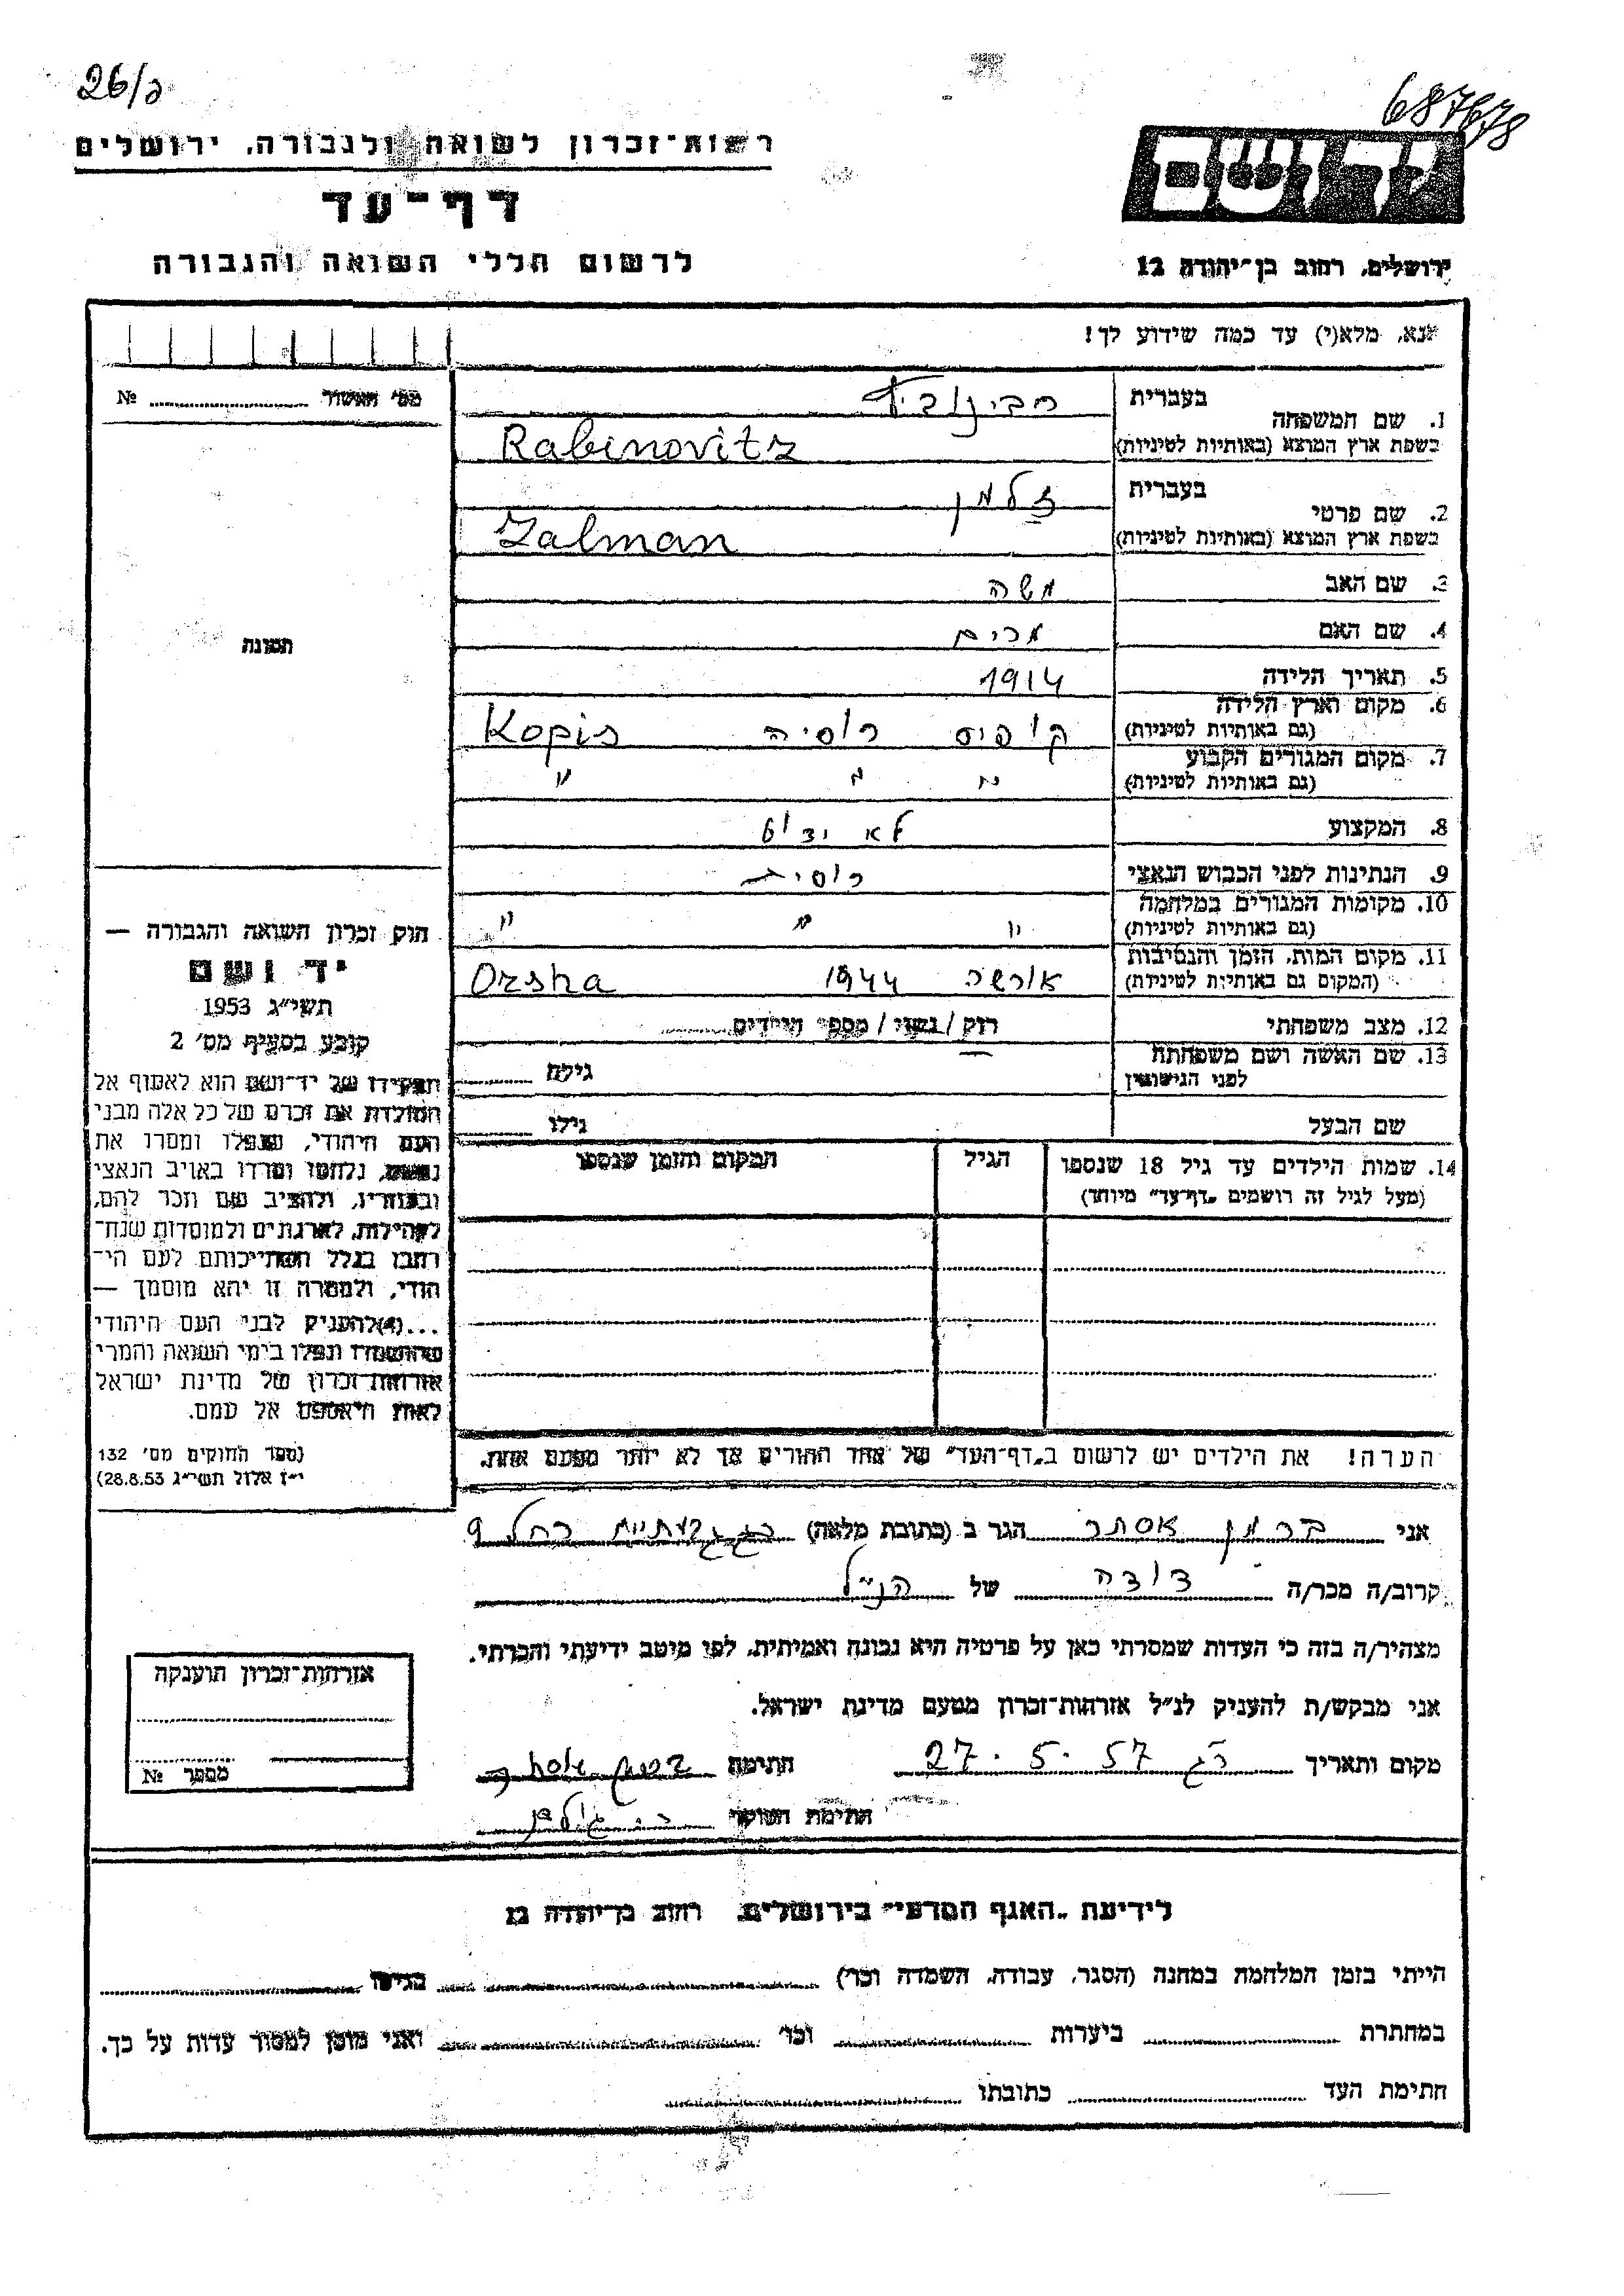 26/ר
687678
רשות־זכרון לשואה ולגבורה, ירושלים
דף־עד
לרשום חללי השואה והגבורה
יד ושם
ירושלים, רחוב בן־יהודה 12
אנא, מלא(י) עד כמה שידוע לך!
מס׳ האשור № 
1. שם המשפחה בעברית רבינוביץ
בשפת ארץ המוצא (באותיות לטיניות) Rabinovitz
2. שם פרטי בעברית זלמן
בשפת ארץ המוצא (באותיות לטיניות) Zalman
3. שם האב משה
4. שם האם מרים
5. תאריך הלידה 1914
6. מקום וארץ הלידה קופיס רוסיה Kopis
(גם באותיות לטיניות)
7. מקום המגורים הקבוע " " "
(גם באותיות לטיניות)
8. המקצוע לא ידוע
9. הנתינות לפני הכבוש הנאצי רוסית
10. מקומות המגורים במלחמה " " "
(גם באותיות לטיניות)
11. מקום המות, הזמן והנסיבות אורשה 1944 Orsha
(המקום גם באותיות לטיניות)
12. מצב משפחתי רוק / נשוי / מספר הילדים
13. שם האשה ושם משפחתה גילה
לפני הנישואין
שם הבעל גילו
14. שמות הילדים עד גיל 18 שנספו הגיל המקום והזמן שנספו
(מעל לגיל זה רושמים „דף־עד" מיוחד)
הערה! את הילדים יש לרשום ב„דף־העד" של אחד ההורים אך לא יותר מפעם אחת.
תמונת
חוק זכרון השואה והגבורה —
יד ושם
תשי״ג 1953
קובע בסעיף מס׳ 2
תפקידו של יד־ושם הוא לאסוף אל
המולדת את זכרם של כל אלה מבני
העם היהודי, שנפלו ומסרו את
נפשם, נלחמו ומרדו באויב הנאצי
ובעוזריו, ולהציב שם וזכר להם,
לקהילות, לארגונים ולמוסדות שנח־
רבו בגלל השתייכותם לעם הי־
הודי, ולמטרה זו יהא מוסמך —
...(4) להעניק לבני העם היהודי
שהושמדו ונפלו בימי השואה והמרי
אזרחות־זכרון של מדינת ישראל
לאות היאספם אל עמם.
(ספר החוקים מס׳ 132
י״ז אלול תשי״ג 28.8.53)
אני ברמן אסתר הגר ב (כתובת מלאה) רג גבעתיים רחל 9
קרוב/ה מכר/ה דודה של הנ״ל
מצהיר/ה בזה כי העדות שמסרתי כאן על פרטיה היא נכונה ואמיתית, לפי מיטב ידיעתי והכרתי.
אני מבקש/ת להעניק לנ״ל אזרחות־זכרון מטעם מדינת ישראל.
מקום ותאריך רג 27.5.57 חתימה ברמן אסתר
חתימת הפוקד
אזרחות־זכרון הוענקה
מספר №
לידיעת „האגף המדעי" בירושלים, רחוב בן־יהודה 12
הייתי בזמן המלחמה במחנה (הסגר, עבודה, השמדה וכו׳) בגיטו
במחתרת ביערות וכו׳ ואני מוכן למסור עדות על כך.
חתימת העד כתובתו